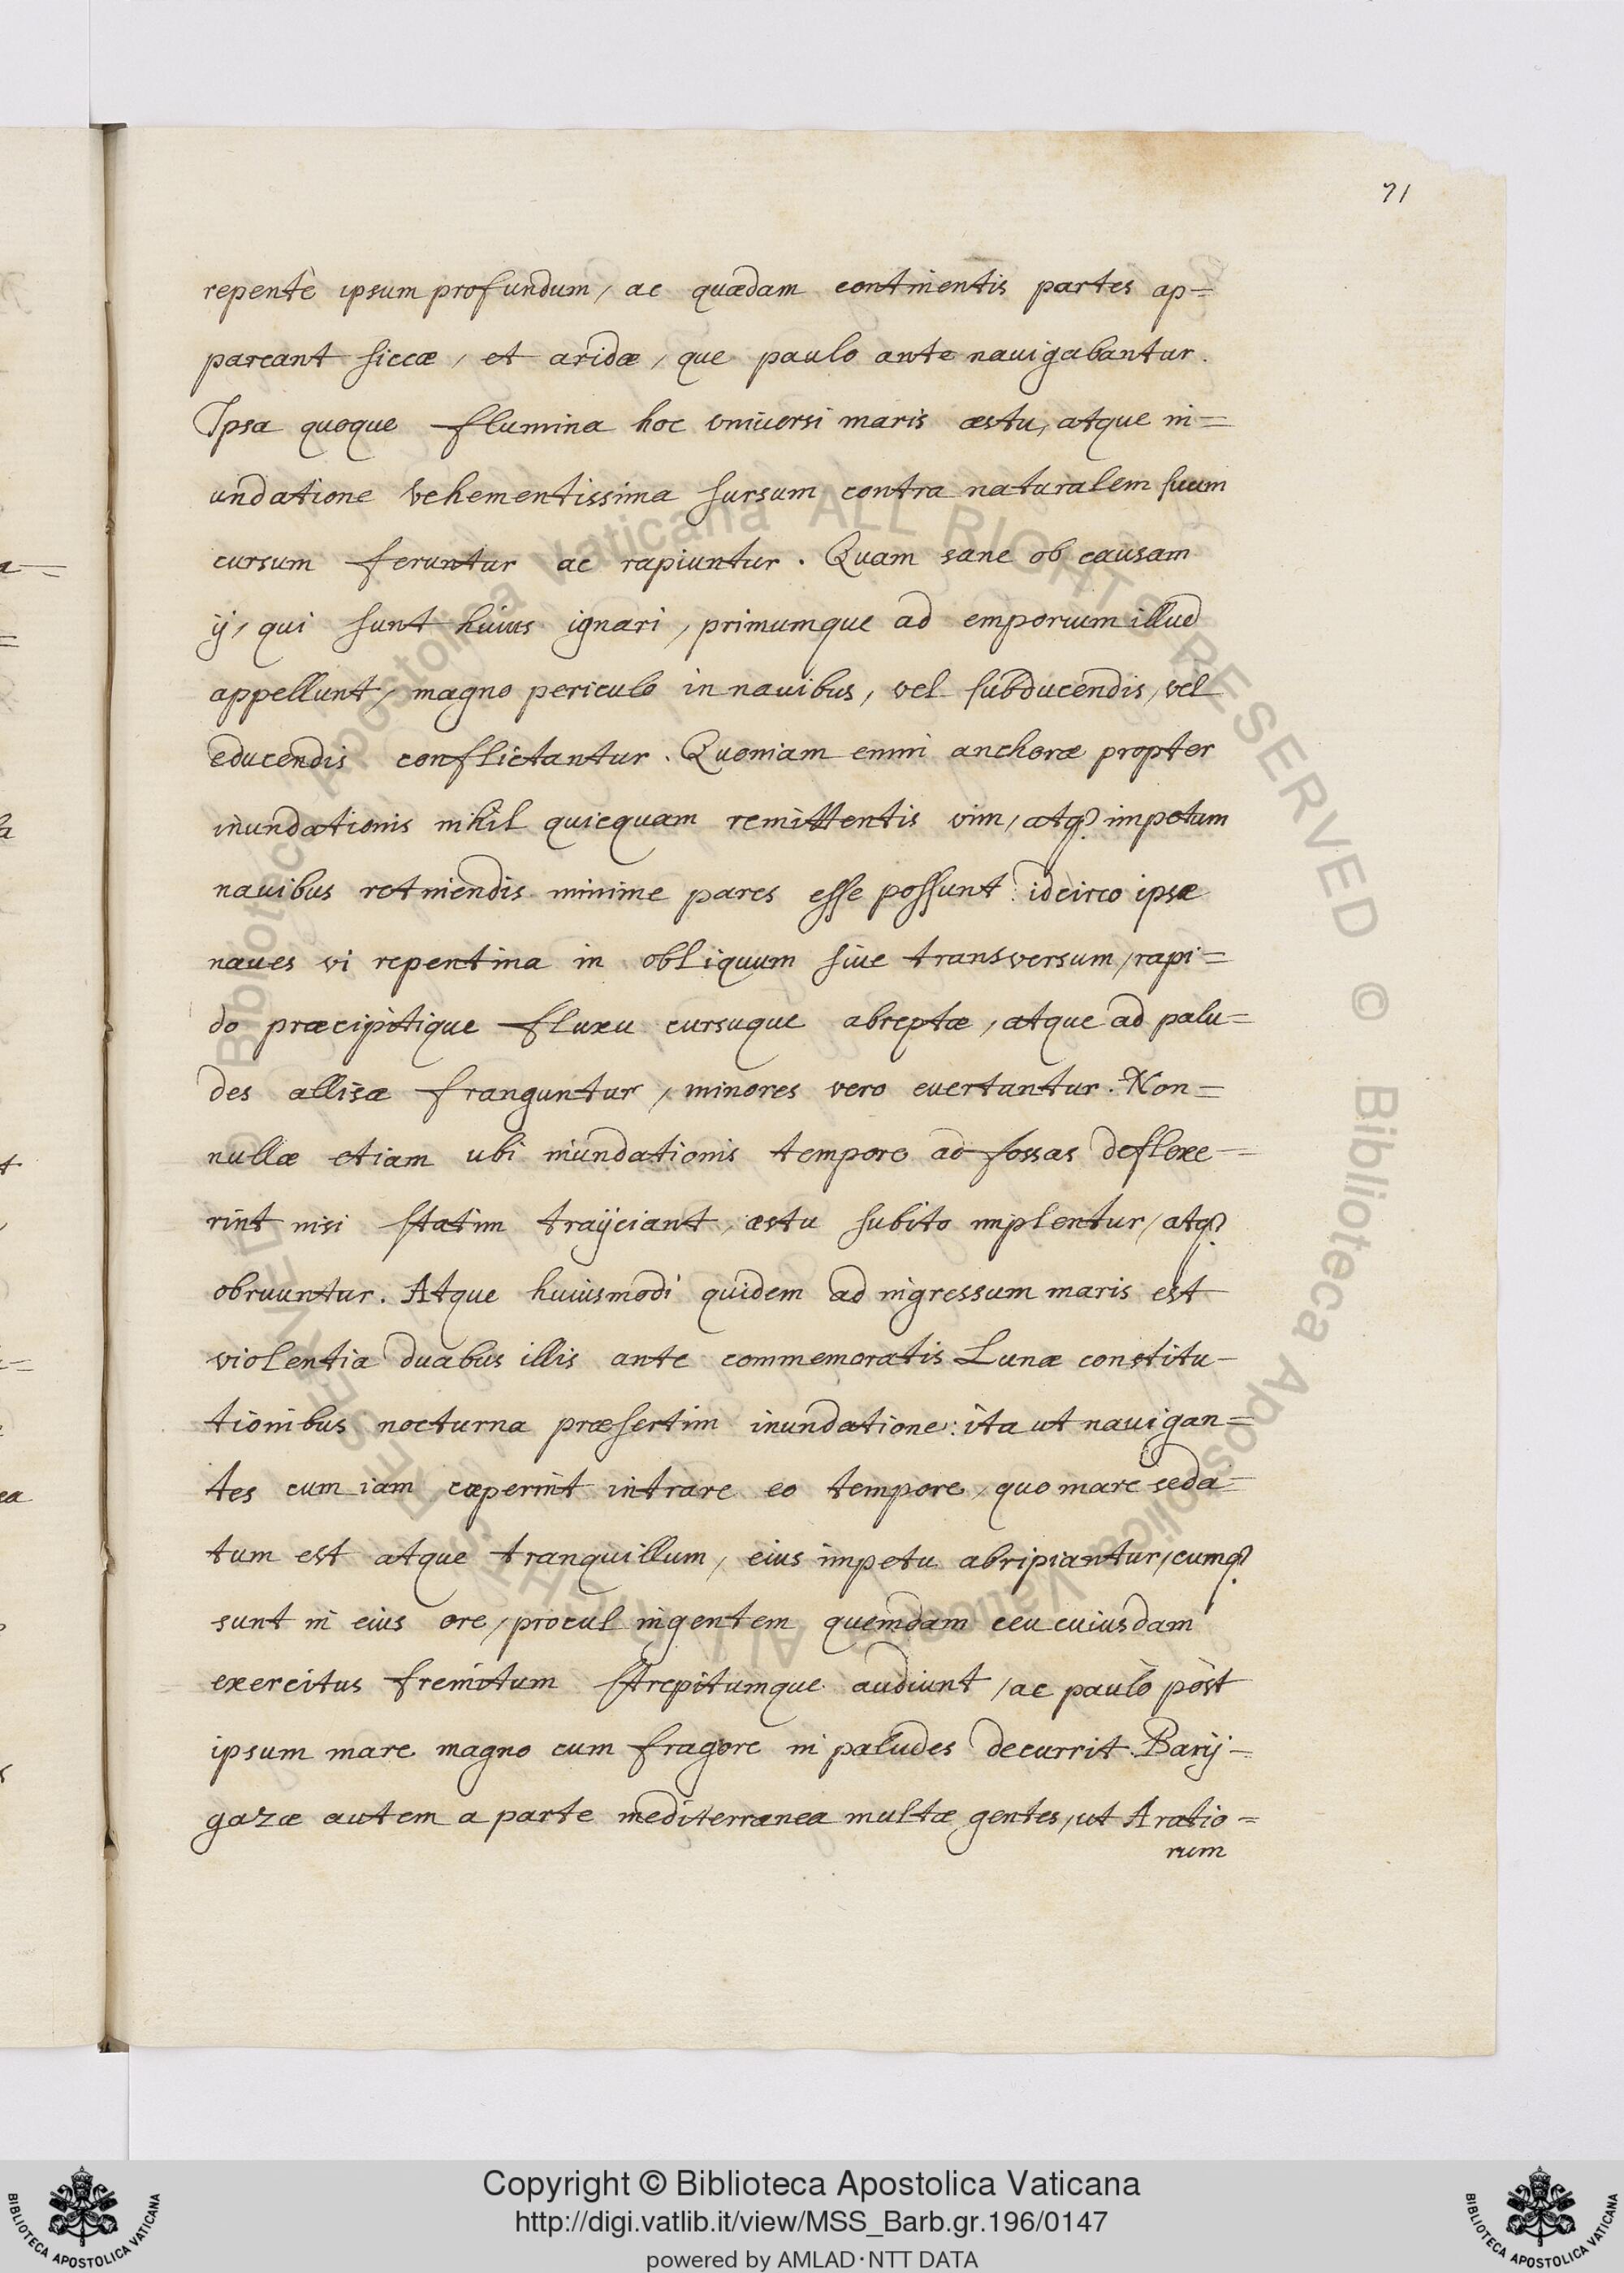 71
repentè ipsum profundum, ac quædam continentis partes ap=
pareant siccæ, et aridæ, que paulo ante nauigabantur.
Ipsa quoque flumina hoc vniuersi maris æstu, atque in=
undatione vehementissima sursum contra naturalem suum
cursum feruntur ac rapiuntur. Quam sane ob causam
ij, qui sunt huius ignari, primumque ad emporium illud
appellunt, magno periculo in nauibus, vel subducendis, vel
educendis conflictantur. Quoniam enim anchoræ propter
inundationis nihil quicquam remittentis vim, atq; impetum
nauibus retinendis minime pares esse possunt: idcirco ipsæ
naues vi repentina in obliquum siue transversum, rapi=
do præcipitique fluxu cursuque abreptæ, atque ad palu=
des allisæ franguntur, minores vero euertuntur. Non=
nullæ etiam ubi inundationis tempore ad fossas deflexe=
rint nisi statim traijciant, æstu subito implentur, atq;
obruuntur. Atque huiusmodi quidem ad ingressum maris est
violentia duabus illis ante commemoratis Lunæ constitu-
tionibus nocturna præsertim inundatione: ita ut nauigan=
tes cum iam cæperint intrare eo tempore, quo mare seda=
tum est atque tranquillum, eius impetu abripiantur, cumq;
sunt in eius ore, procul ingentem quemdam ceu cuiusdam
exercitus fremitum strepitumque audiunt, ac paulò pòst
ipsum mare magno cum fragore in paludes decurrit. Barij=
gazæ autem a parte mediterranea multæ gentes, ut Aratio=
rum
Copyright © Biblioteca Apostolica Vaticana
http://digi.vatlib.it/view/MSS_Barb.gr.196/0147
powered by AMLAD·NTT DATA